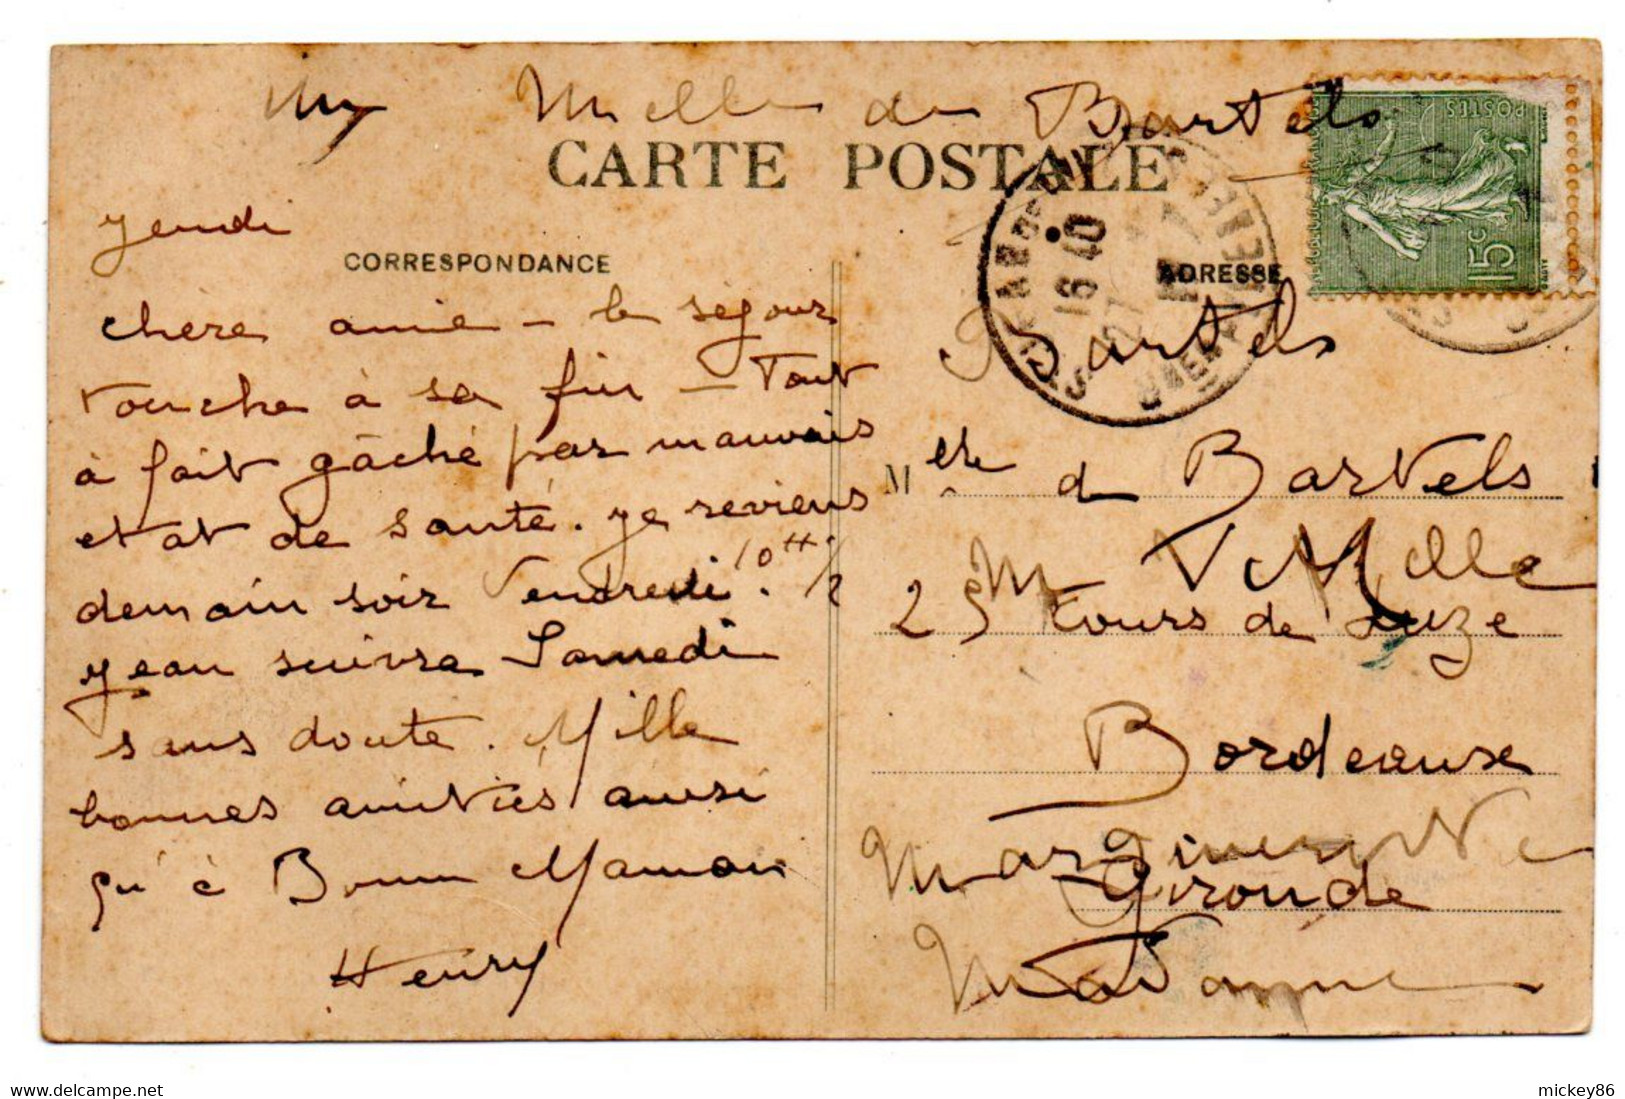 Melle de Bartels
CARTE POSTALE
Jeudi
CORRESPONDANCE
chère amie – le séjour
touche à sa fin – Tout
à fait gâché par mauvais
etat de santé. je reviens
demain soir Vendredi 10 H ½
jean suivra Samedi
sans doute. Mille
bonnes amitiés ainsi
qu'à Bonne Maman
Henry
POSTES
15c
16 40
ADRESSE
Bartels
M elle de Bartels
M Melle
25 Cours de Luze
Bordeaux
Gironde
Madame
mickey86
delcampe.net